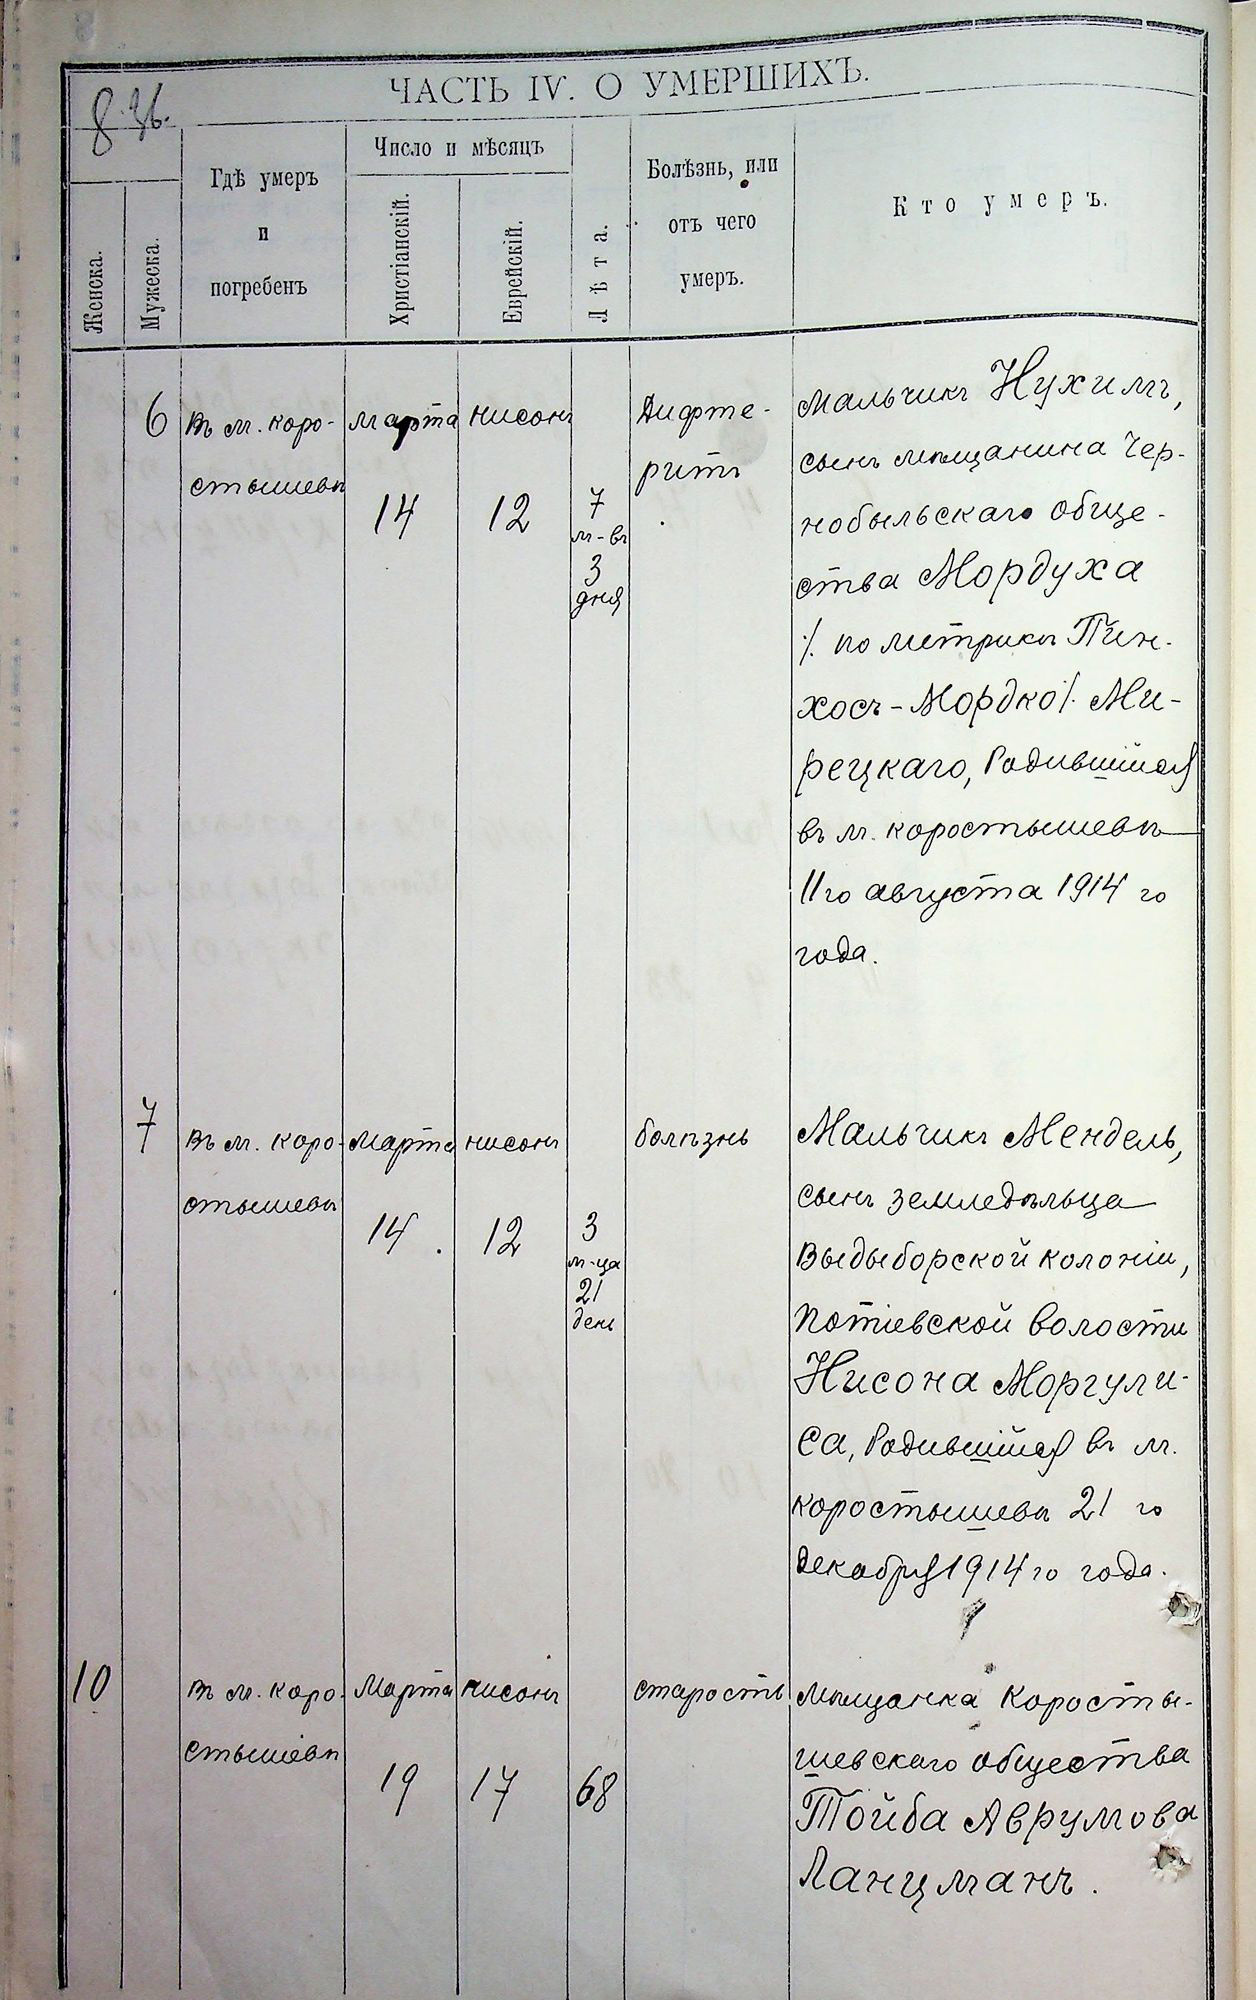 ЧАСТЬ IV. О УМЕРШИХЪ.
Женска.
Мужеска.
Гдѣ умеръ
и
погребенъ
Число и мѣсяцъ
Христіанскій.
Еврейскій.
Лѣта.
Болѣзнь, или
отъ чего
умеръ.
Кто умеръ.
6
Въ м. Коро-
стышевѣ
Марта
14
Нисонъ
12
7
м-въ
3
дня
Дифте-
ритъ
Мальчикъ Нухимъ,
сынъ мѣщанина Чер-
нобыльскаго обще-
ства Мордуха
/. по метрикѣ Пин-
хосъ-Мордко/. Ми-
рецкаго, Родившійся
въ м. Коростышевѣ
11го августа 1914 го
года.
7
Въ м. Коро-
стышевѣ
Марта
14.
Нисонъ
12
3
м-ца
21
день
болѣзнь
Мальчикъ Мендель,
сынъ земледѣльца
Выдыборской колоніи,
Потіевской волости
Нисона Моргули-
са, Родившійся въ м.
Коростышевѣ 21 го
Декабря 1914 го года.
10
Въ м. Коро-
стышевѣ
Марта
19
Нисонъ
17
68
старость
Мѣщанка Коросты-
шевскаго общества
Тойба Аврумова
Ланцманъ.